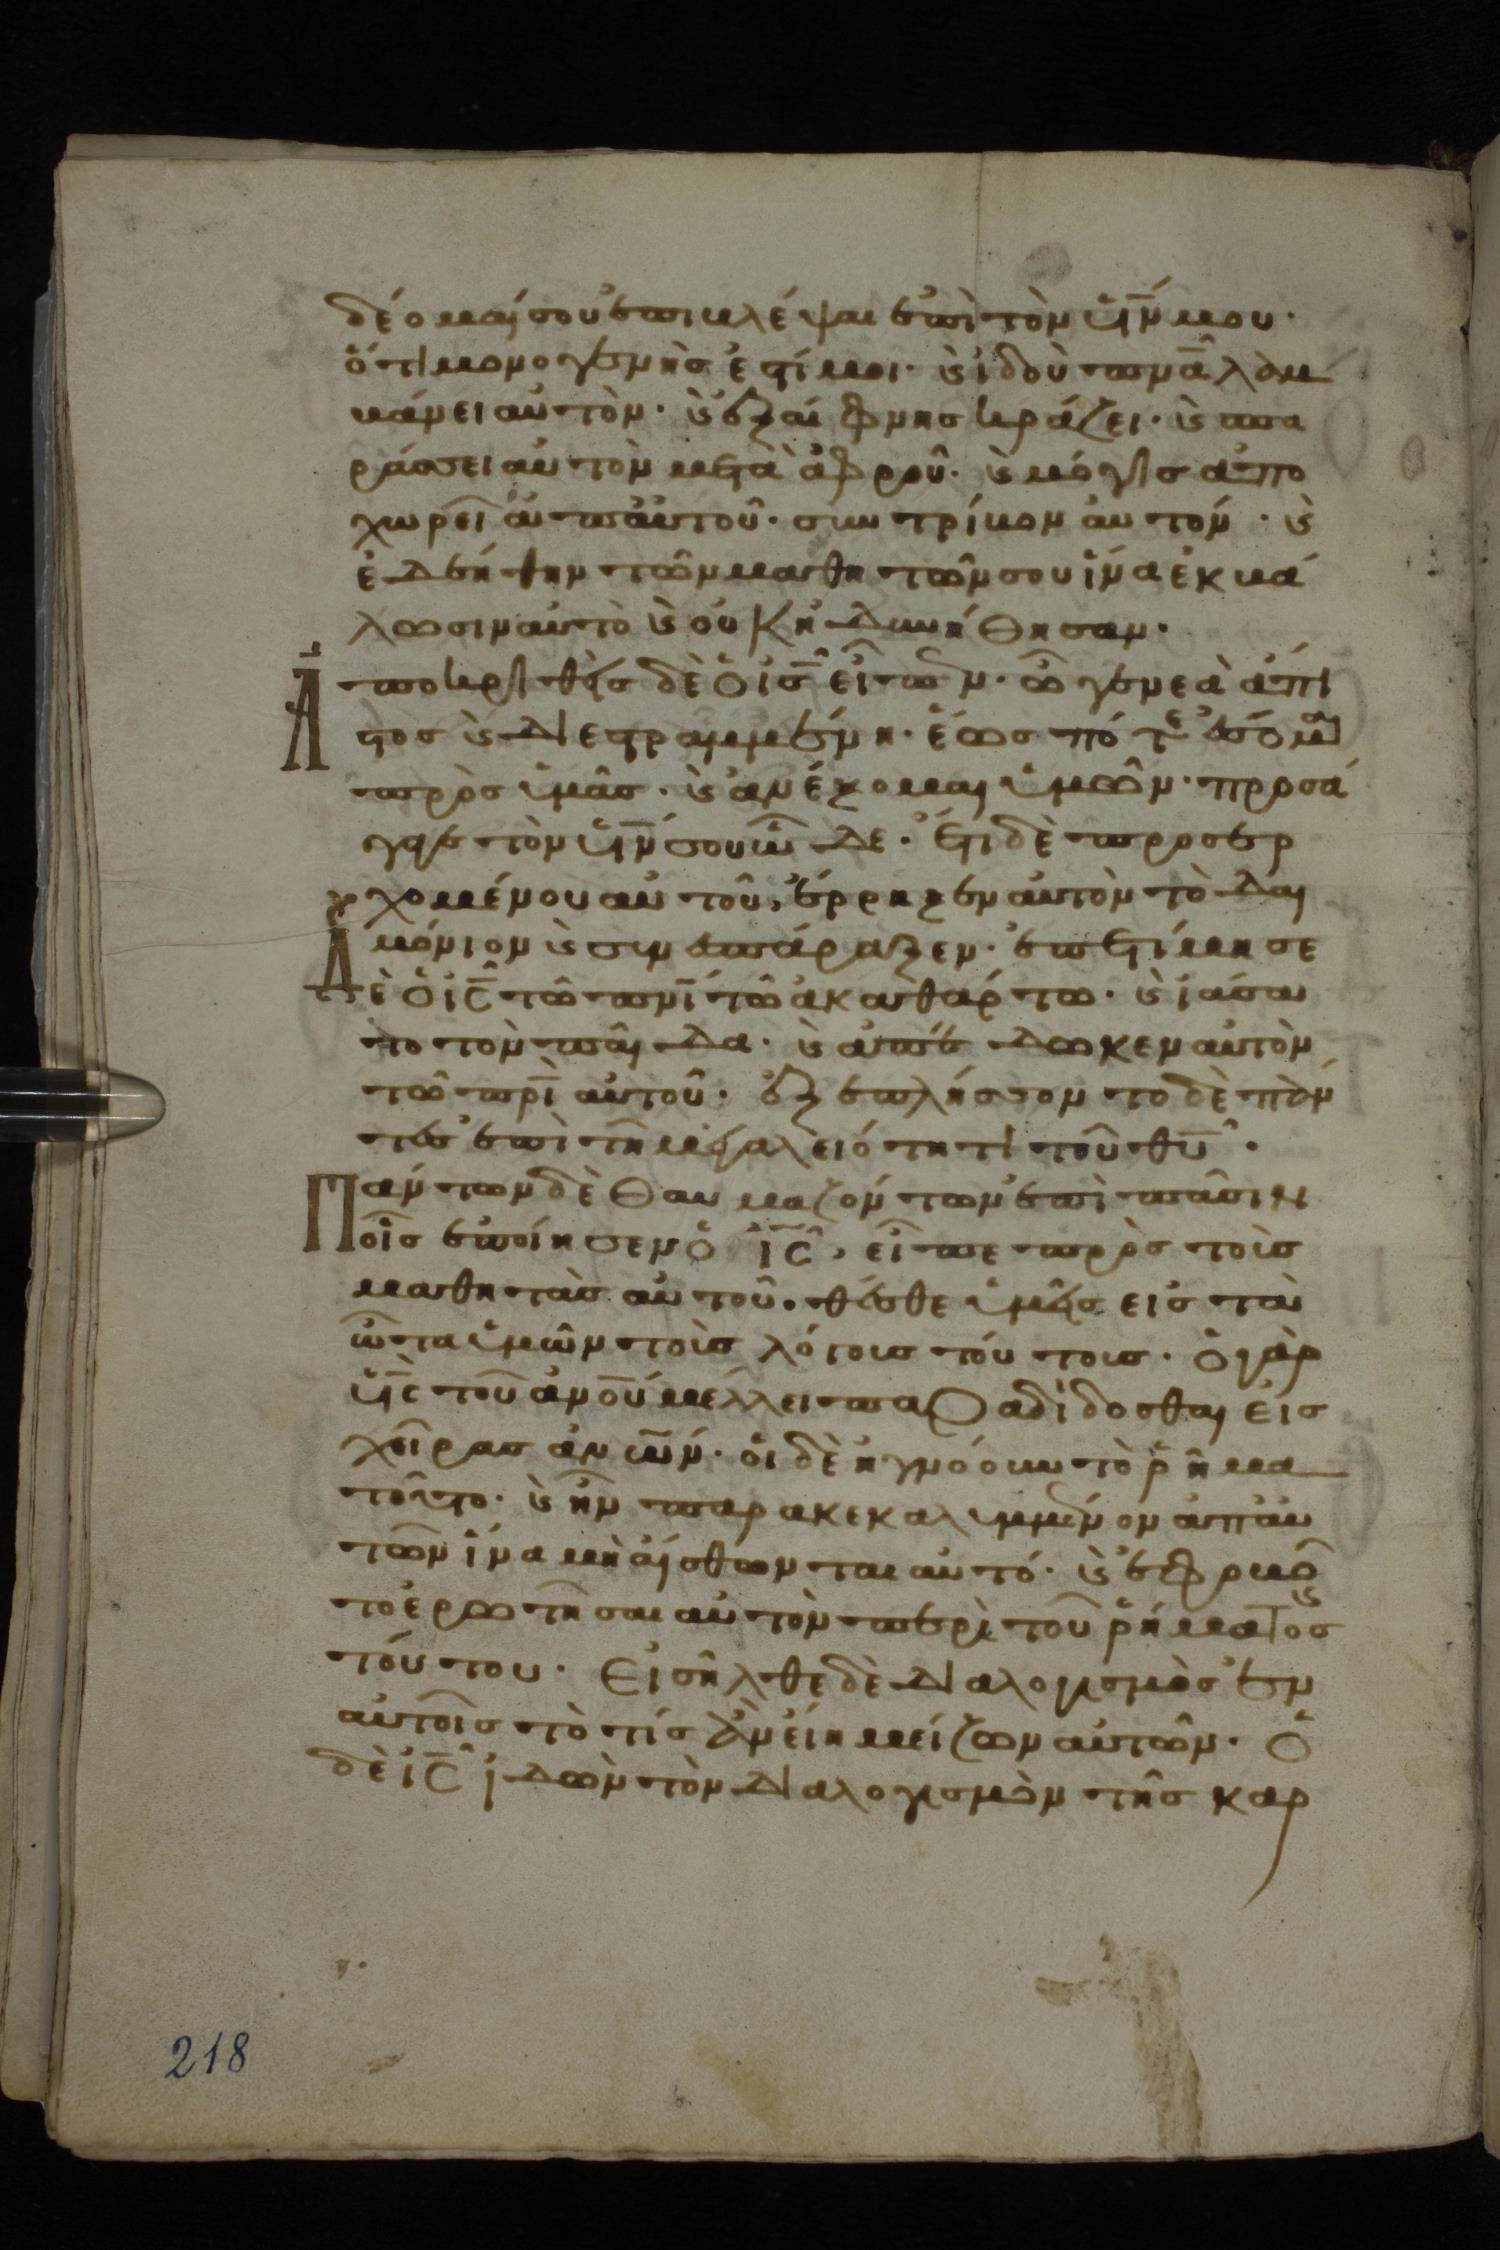 δέομαί σου ἐπιβλέψαι ἐπὶ τὸν υἱν μου·
ὅτι μονογενής ἐστί μοι· καὶ ἰδοὺ πνα λαμ
βάνει αὐτὸν· καὶ ἐξαίφνης κράζει· καὶ σπα
ράσσει αὐτὸν μετὰ ἀφροῦ· καὶ μόγις ἀπο
χωρεῖ ἀπ αὐτοῦ· συντρίβον αὐτόν· καὶ
ἐδεήθην τῶν μαθητῶν σου ἵνα ἐκβά
λωσιν αὐτὸ καὶ οὐκ ἠδυνήθησαν·
Ἀποκριθεὶς δὲ ὁ ις εἶπεν· ὦ γενεὰ ἄπι
στος καὶ διεστραμμένη· ἕως πότε ἔσομαι
πρὸς ὑμᾶς· καὶ ἀνέξομαι ὑμῶν· προσά
γαγε τὸν υἱν σου ὧδε· ἔτι δὲ προσερ
χομένου αὐτοῦ, ἔρρηξεν αὐτὸν τὸ δαι
μόνιον καὶ συνεσπάραξεν· ἐπετίμησε
Δὲ ὁ ις τῶ πνι τῶ ἀκαθάρτω· καὶ ἰάσα
το τὸν παῖδα· καὶ ἀπέδωκεν αὐτὸν
τῶ πρι αὐτοῦ· ἐξεπλήσσοντο δὲ πάν
τες ἐπὶ τῆ μεγαλειότητι τοῦ θυ·
Πάντων δὲ θαυμαζόντων ἐπὶ πᾶσιν
οἷς ἐποίησεν ὁ ις, εἶπε πρὸς τοὺς
μαθητὰς αὐτοῦ· θέσθε ὑμεῖς εἰς τὰ
ὦτα ὑμῶν τοὺς λόγους τούτους· ὁ γὰρ
υἱς τοῦ ανου μέλλει παραδίδοσθαι εἰς
χεῖρας ανων· οἱ δὲ ἠγνόουν τὸ ῥῆμα
τοῦτο· καὶ ἦν παρακεκαλυμμένον ἀπ αὐ
τῶν ἵνα μὴ αἴσθωνται αὐτό· καὶ ἐφοβοῦν
το ἐρωτῆσαι αὐτὸν περὶ τοῦ ῥήματος
τούτου· Εἰσῆλθε δὲ διαλογισμὸς ἐν
αὐτοῖς τὸ τίς ἂν εἴη μείζων αὐτῶν· ὁ
δὲ ις ἰδὼν τὸν διαλογισμὸν τῆς καρ
218